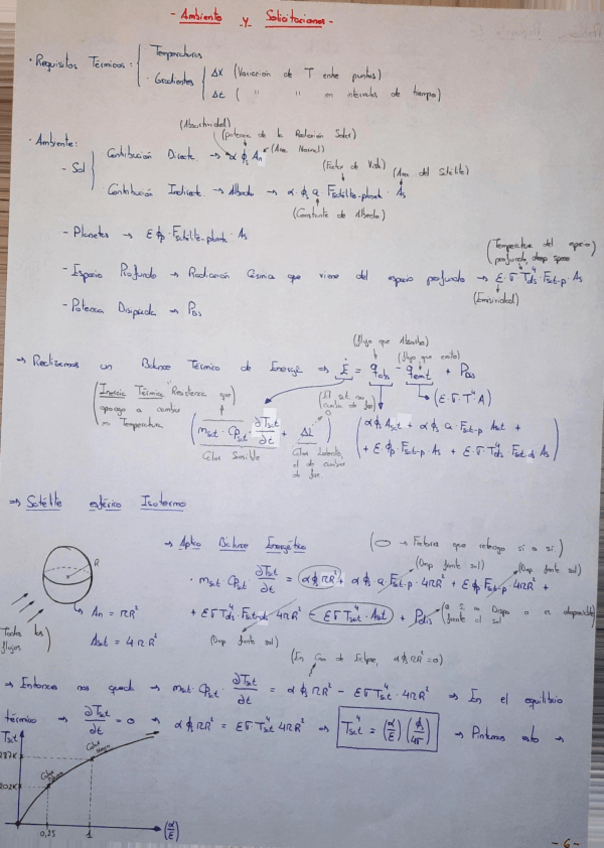 - Ambiente y Solicitaciones -
· Requisitos Térmicos: { Temperaturas
· Gradientes { Δx (Variación de T entre puntos)
Δt ( " " en intervalos de tiempo)
(Absortividad)
(potencia de la Radiación Solar)
· Ambiente:
- Sol { Contribución Directa → α ϕs An (Área Normal)
(Factor de Vista) (Área del Satélite)
Contribución Indirecta → Albedo → α · ϕs a Fsatélite-planeta · As
(Constante de Albedo)
- Planetas → ε ϕp · Fsatélite-planeta · As
(Temperatura del espacio profundo, deep space)
- Espacio Profundo → Radiación Cósmica que viene del espacio profundo → ε · σ Tds⁴ · Fsat-p · As
(Emisividad)
- Potencia Disipada → Pdis
(flujo que Absorbe)
(flujo que emite)
→ Realizamos un Balance Térmico de Energía → Ė = qabs - qemit + Pdis
(Inercia Térmica "Resistencia que
opongo a cambiar
mi Temperatura
(ε · σ · T⁴ A)
( msat · CPsat · ∂Tsat/∂t + ΔL )
Calor Sensible
Calor Latente,
el de cambio
de fase
( α ϕs Asat + α ϕs a · Fsat-p · Asat +
+ ε · ϕp Fsat-p · As + ε · σ · Tds⁴ · Fsat-ds As )
→ Satélite esférico Isotermo
→ Aplico Balance Energético
R
· msat CPsat ∂Tsat/∂t = α ϕs πR² + α ϕs a · Fsat-p · 4πR² + ε ϕp Fsat-p 4πR² +
→ An = πR²
+ ε σ Tds⁴ Fsat-ds 4πR² - ε σ Tsat⁴ · Asat + Pdis
Asat = 4πR²
Todos los
flujos
(En Caso de Eclipse, α ϕs πR² = 0)
→ Entonces nos queda → msat · CPsat · ∂Tsat/∂t = α ϕs πR² - ε σ Tsat⁴ · 4πR² → En el equilibrio
térmico → ∂Tsat/∂t = 0 → α ϕs πR² = ε σ Tsat⁴ 4πR² → Tsat⁴ = (α/ε) (ϕs/4σ) → Pintamos esto →
Tsat
287K
202K
0,25
1
(α/ε)
- 6 -